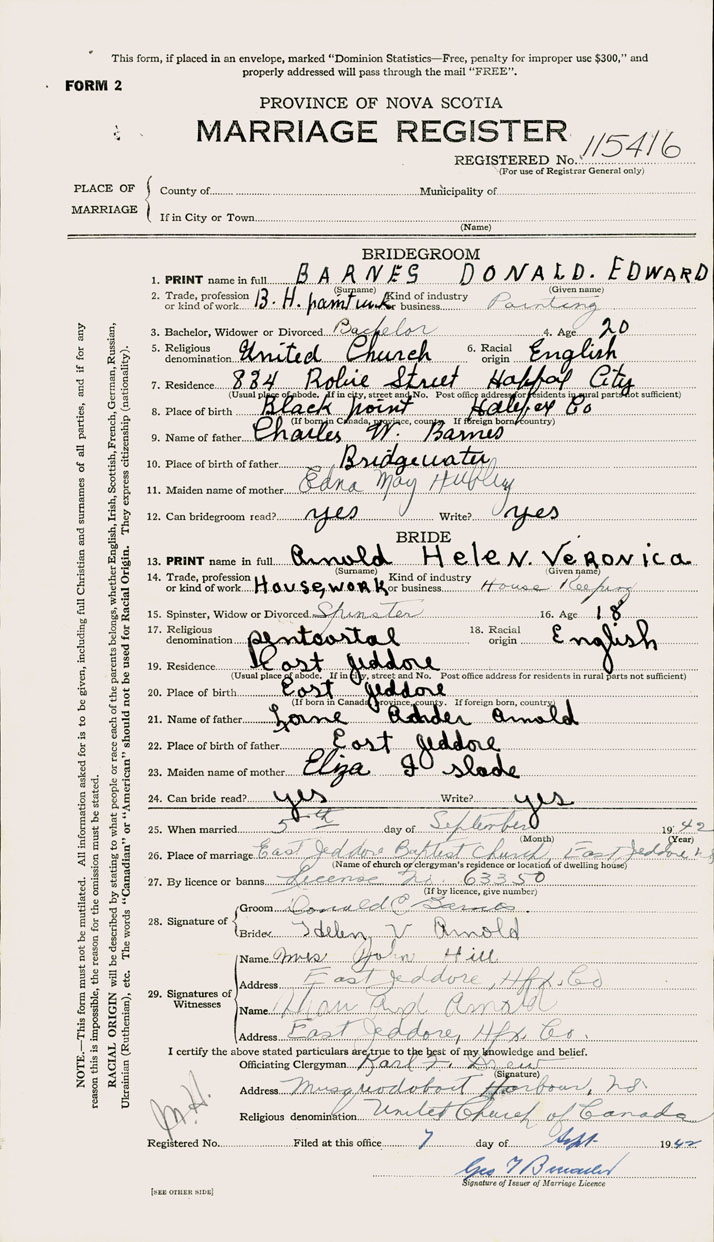 This form, if placed in an envelope, marked "Dominion Statistics—Free, penalty for improper use $300," and
properly addressed will pass through the mail "FREE".
FORM 2
PROVINCE OF NOVA SCOTIA
MARRIAGE REGISTER
REGISTERED No. 115416
(For use of Registrar General only)
PLACE OF MARRIAGE
County of Municipality of
If in City or Town
(Name)
BRIDEGROOM
1. PRINT name in full BARNES DONALD. EDWARD
(Surname) (Given name)
2. Trade, profession or kind of work B. H. Kind of industry or business Painting
3. Bachelor, Widower or Divorced Bachelor 4. Age 20
5. Religious denomination United Church 6. Racial origin English
7. Residence 884 Robie Street City
(Usual place of abode. If in city, street and No. Post office address for residents in rural parts not sufficient)
8. Place of birth Black point Halifex Co
(If born in Canada, province, county. If foreign born, country)
9. Name of father Charles W. Barnes
10. Place of birth of father Bridgewater
11. Maiden name of mother Edna May Hubley
12. Can bridegroom read? yes Write? yes
BRIDE
13. PRINT name in full Arnold HeleN. VeRONica
(Surname) (Given name)
14. Trade, profession or kind of work HousewoRK Kind of industry or business House Keeping
15. Spinster, Widow or Divorced Spinster 16. Age 18
17. Religious denomination pentcostal 18. Racial origin English
19. Residence East Jeddore
(Usual place of abode. If in city, street and No. Post office address for residents in rural parts not sufficient)
20. Place of birth East Jeddore
(If born in Canada, province, county. If foreign born, country)
21. Name of father Lorne Arnold
22. Place of birth of father East Jeddore
23. Maiden name of mother Eliza J slade
24. Can bride read? yes Write? yes
25. When married 5th day of September 1942
(Month) (Year)
26. Place of marriage East Jeddore Baptist Church, East Jeddore NS
(Name of church or clergyman's residence or location of dwelling house)
27. By licence or banns License No. 63350
(If by licence, give number)
28. Signature of
Groom Donald E Barnes
Bride Helen V Arnold
29. Signatures of Witnesses
Name Mrs John Hill
Address East Jeddore, Hfx. Co
Name Arnold
Address East Jeddore, Hfx. Co.
I certify the above stated particulars are true to the best of my knowledge and belief.
Officiating Clergyman Karl F. Drew
(Signature)
Address Musquodoboit Harbour, NS
Religious denomination United Church of Canada
Registered No. Filed at this office 7 day of Sept 1942
Geo T
Signature of Issuer of Marriage Licence
[SEE OTHER SIDE]
M.H.
NOTE.—This form must not be mutilated. All information asked for is to be given, including full Christian and surnames of all parties, and if for any
reason this is impossible, the reason for the omission must be stated.
RACIAL ORIGIN will be described by stating to what people or race each of the parents belongs, whether English, Irish, Scottish, French, German, Russian,
Ukrainian (Ruthenian), etc. The words "Canadian" or "American" should not be used for Racial Origin. They express citizenship (nationality).